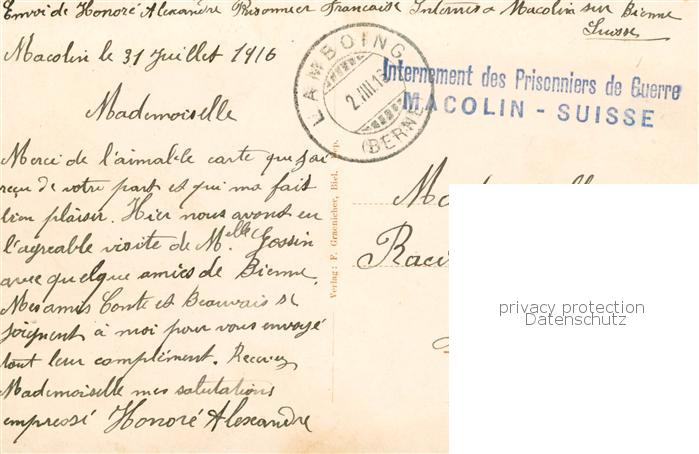 Envoi de Honoré Alexandre Prisonnier Française Internés a Macolin sur Bienne
Suisse
Macolin le 31 Juillet 1916
LAMBOING
2.VIII.16
(BERNE)
Internement des Prisonniers de Guerre
MACOLIN - SUISSE
Mademoiselle
Merci de l'aimable carte que j'ai
reçu de votre part et qui ma fait
bien plaisir. Hier nous avont eu
l'agreable visite de Melle Gossin
avec quelque amies de Bienne.
Mes amis Conte et Beauvais se
joignent à moi pour vous envoyé
tout leur complément. Recevez
Mademoiselle mes salutations
empressé Honoré Alexandre
Verlag: F. Graenicher, Biel. Dep.
privacy protection
Datenschutz